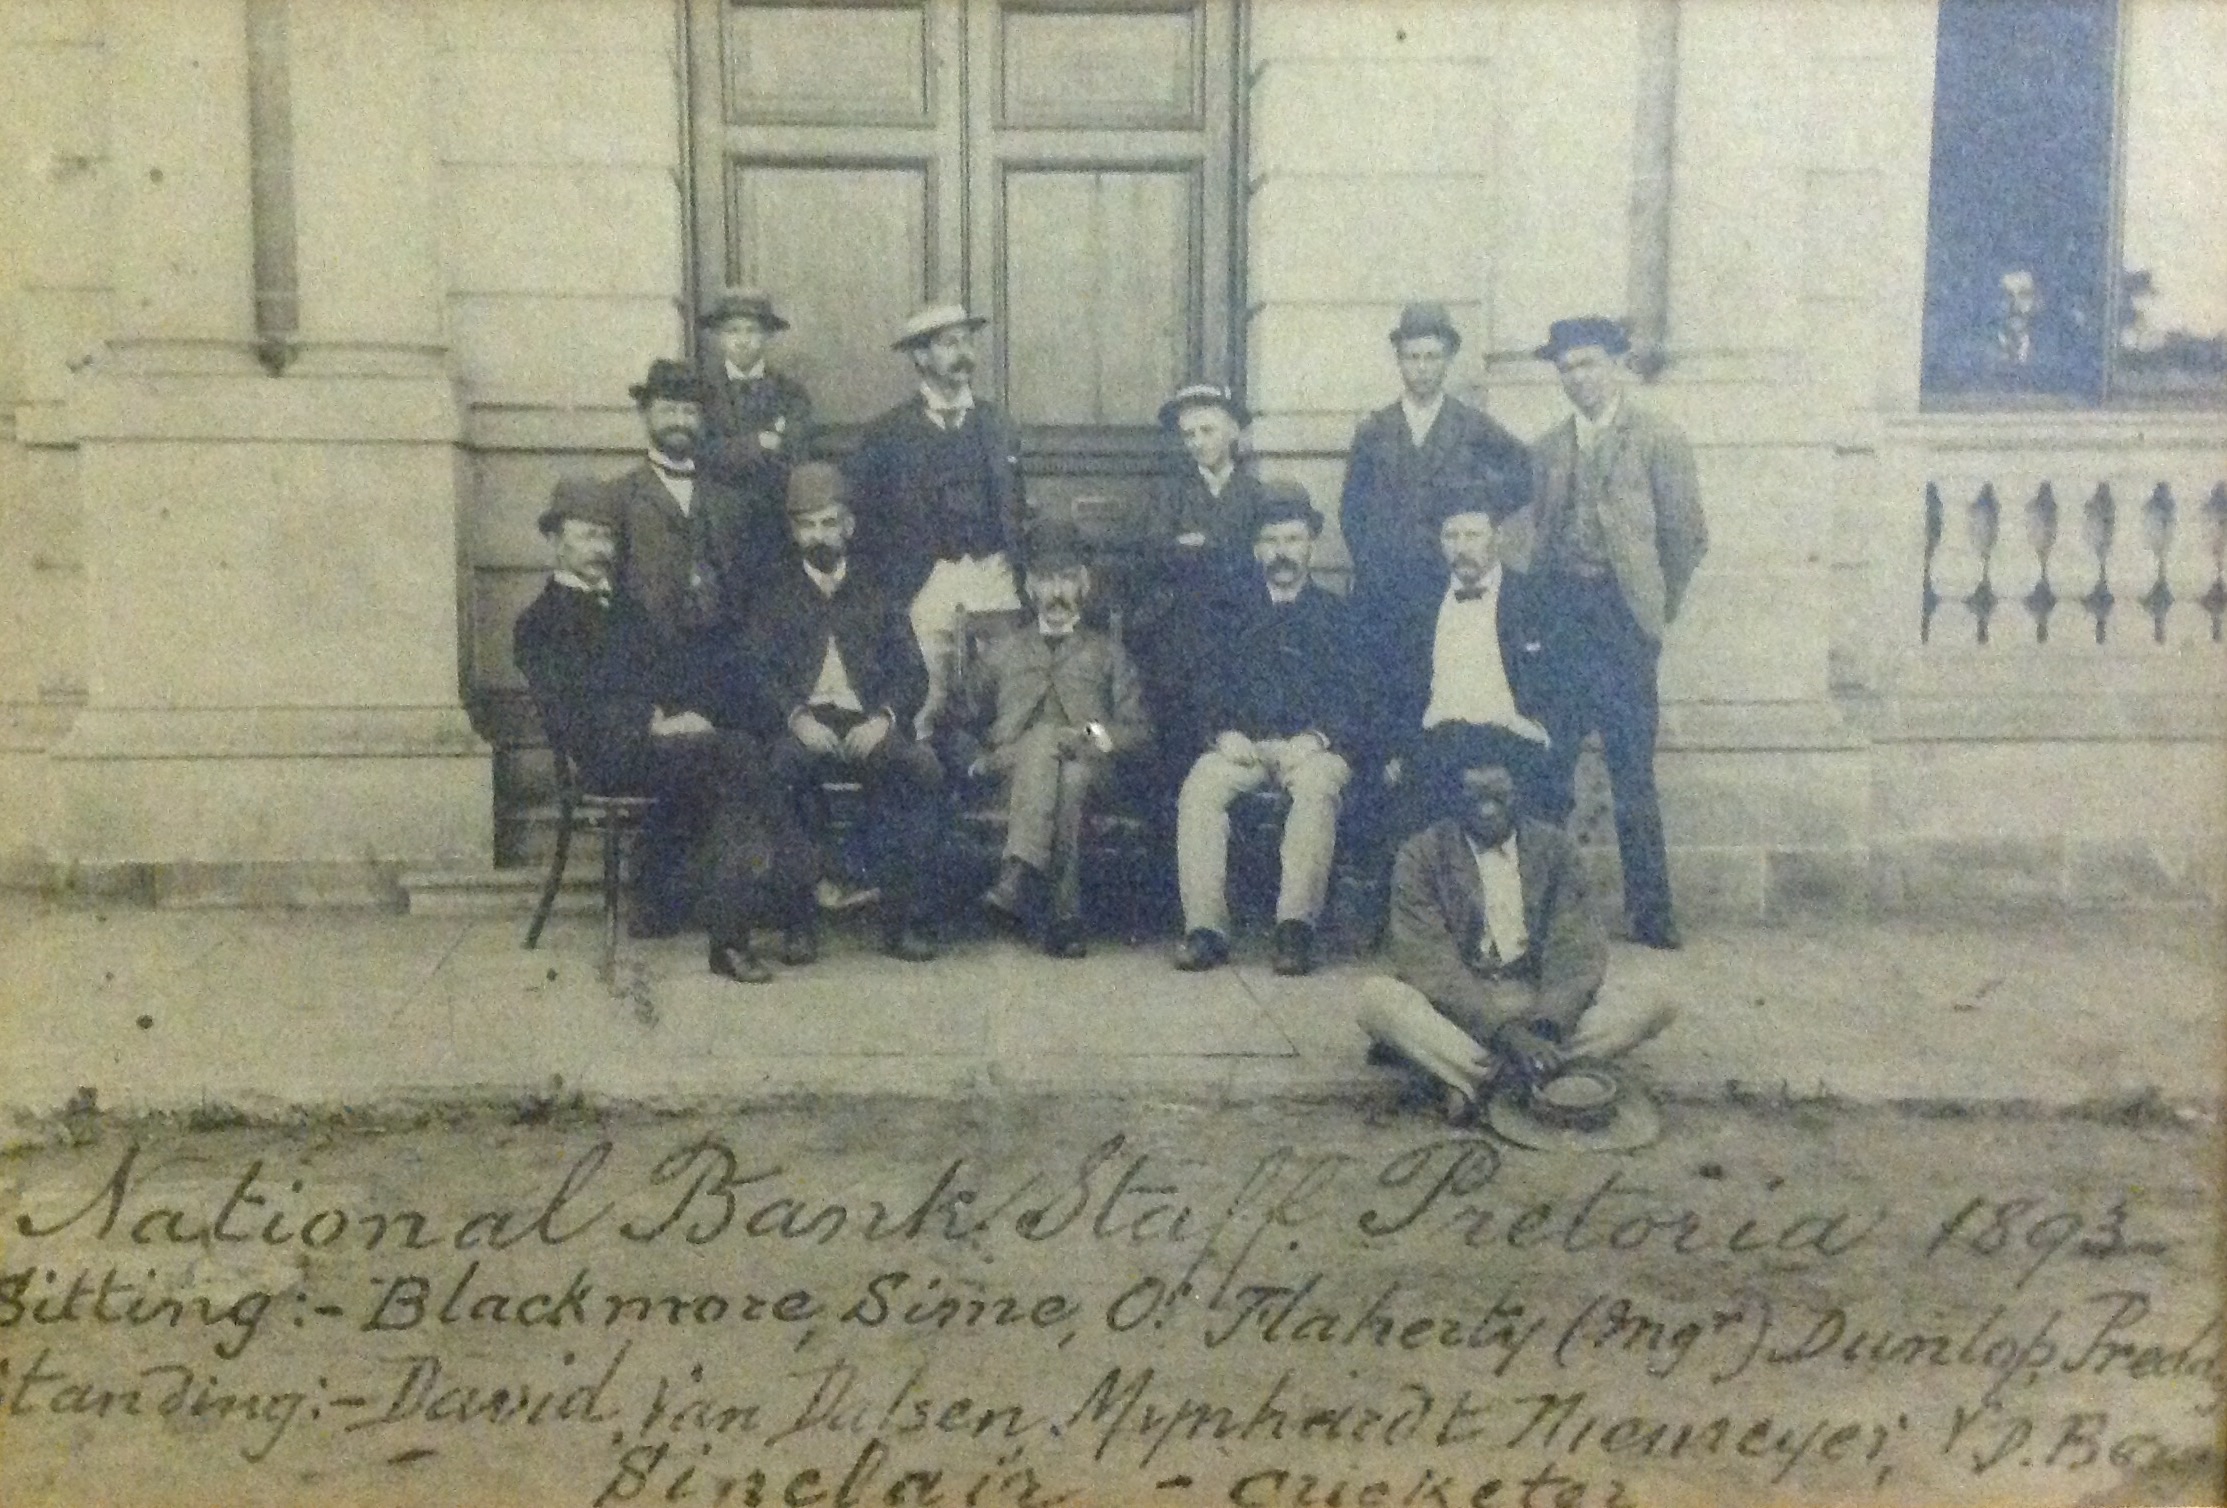 National Bank Staff. Pretoria 1893
Sitting:- Blackmore, Sime, O'Flaherty (Mngr) Dunlop,
Standing:- David, Van Dulsen, Mynhardt Niemeyer, V.D.
Sinclair - cricketer